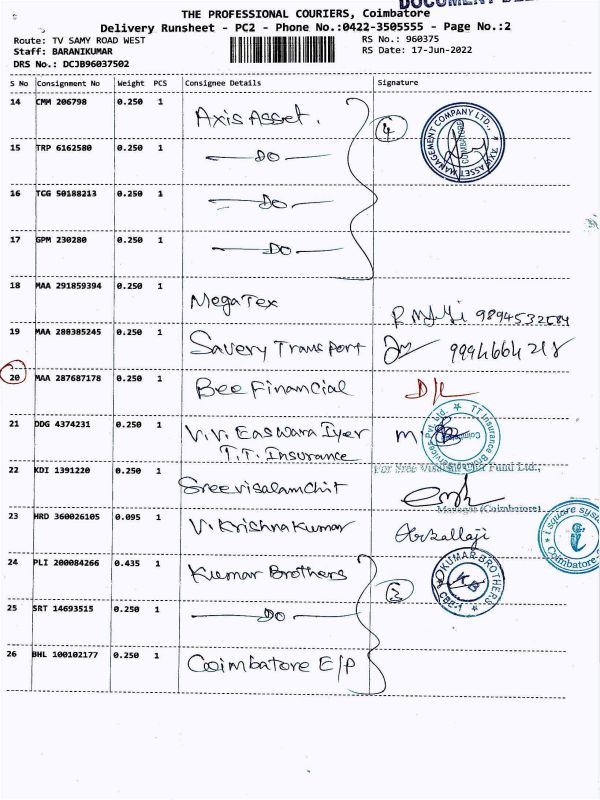 DOCUMENT
THE PROFESSIONAL COURIERS, Coimbatore
Delivery Runsheet - PC2 - Phone No.:0422-3505555 - Page No.:2
Route: TV SAMY ROAD WEST RS No.: 960375
Staff: BARANIKUMAR RS Date: 17-Jun-2022
DRS No.: DCJB96037502
S No Consignment No Weight PCS Consignee Details Signature
14 CMM 206798 0.250 1 Axis Asset. 4
AXIS ASSET MANAGEMENT COMPANY LTD., COIMBATORE
15 TRP 6162580 0.250 1 DO
16 TCG 50188213 0.250 1 DO
17 GPM 230280 0.250 1 DO
18 MAA 291859394 0.250 1 MegaTex
19 MAA 280385245 0.250 1 Savery Transport 9994664218
20 MAA 287687178 0.250 1 Bee Financial D/L
21 DDG 4374231 0.250 1 V.V. Easwara Iyer
T.T. Insurance
TT Insurance Services Pvt. Ltd.
22 KDI 1391220 0.250 1 Sreevisalamchit
For Sree Fund Ltd.,
Manager (Coimbatore)
23 HRD 360026105 0.095 1 V. Krishnakumar
i square Coimbatore
24 PLI 200084266 0.435 1 Kumar Brothers 3
KUMAR BROTHERS KB CBE-1
25 SRT 14693515 0.250 1 DO
26 BHL 100102177 0.250 1 Coimbatore E/P